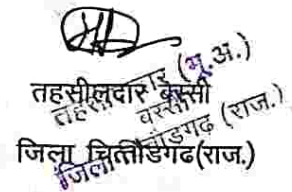 तहसीलदार (भू.अ.)
तहसीलदार बस्सी
बस्सी
जिला चित्तौडगढ (राज.)
जिला चित्तौडगढ(राज.)